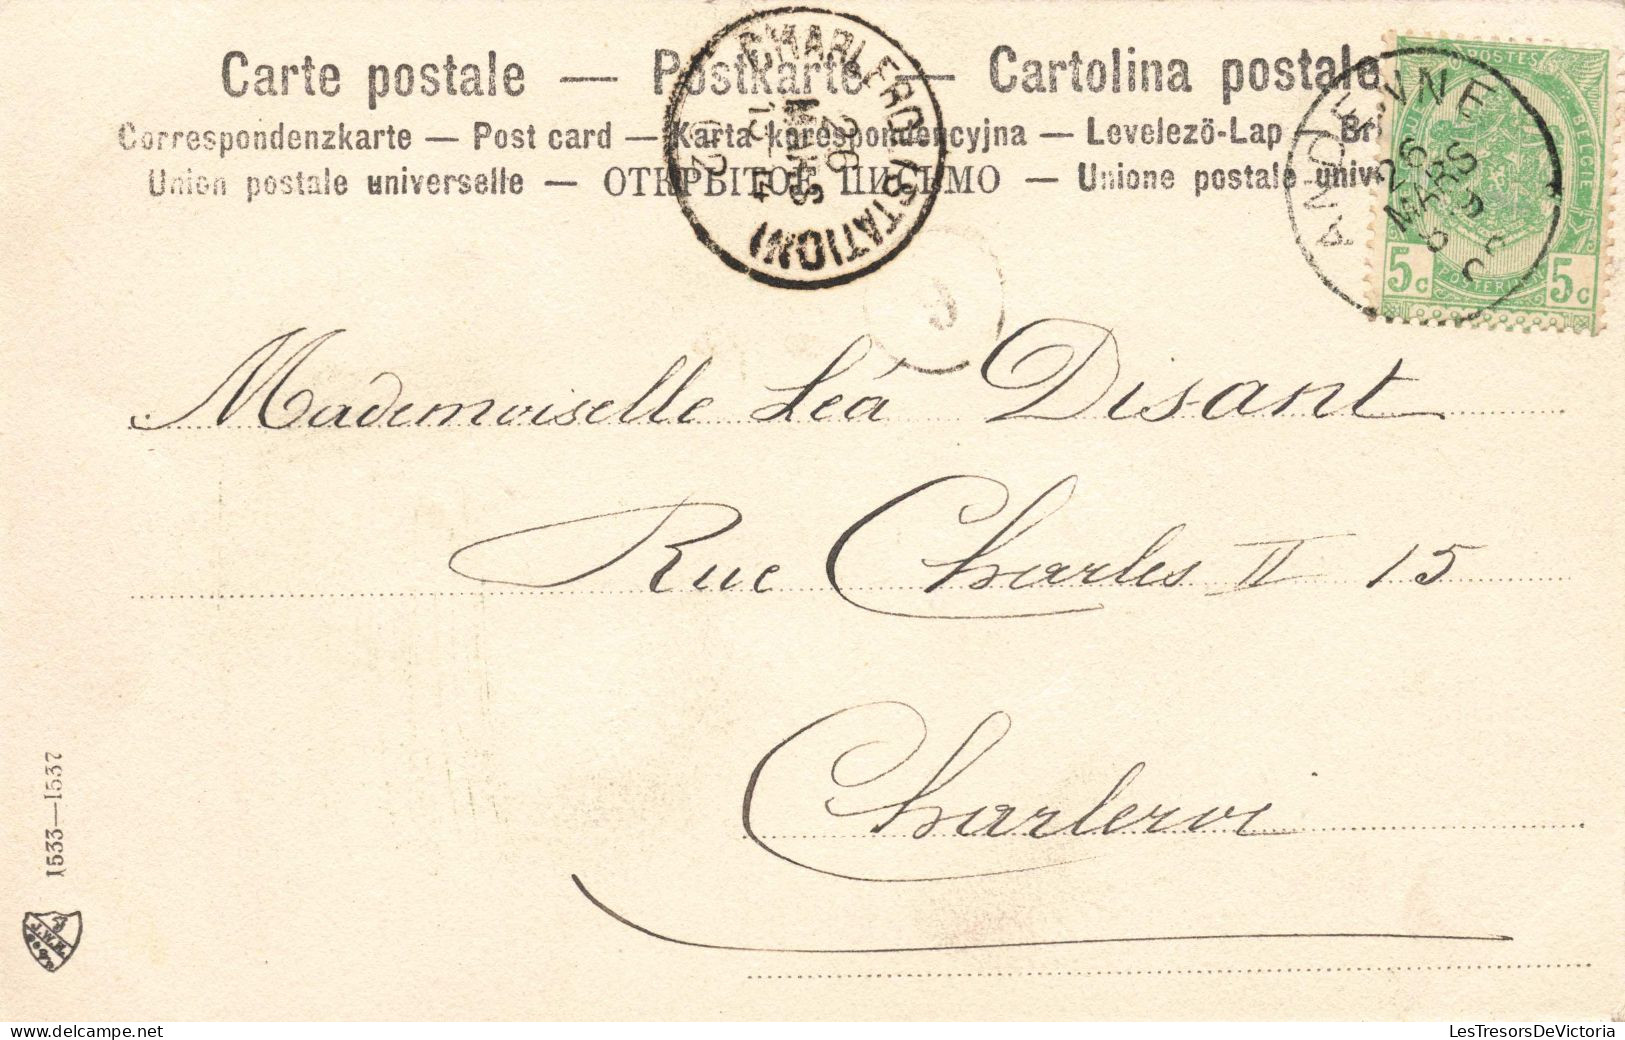 Carte postale — Postkarte — Cartolina postale
Correspondenzkarte — Post card — Karta korespondencyjna — Levelező-Lap — Bri
Union postale universelle — ОТКРЫТОЕ ПИСЬМО — Unione postale univ
CHARLEROI (STATION)
26
MARS
ANDENNE
26
MARS
POSTES
BELGIE
5c 5c
Mademoiselle Léa Disant
Rue Charles II 15
Charleroi
1533—1537
J.W.B.
LesTresorsDeVictoria